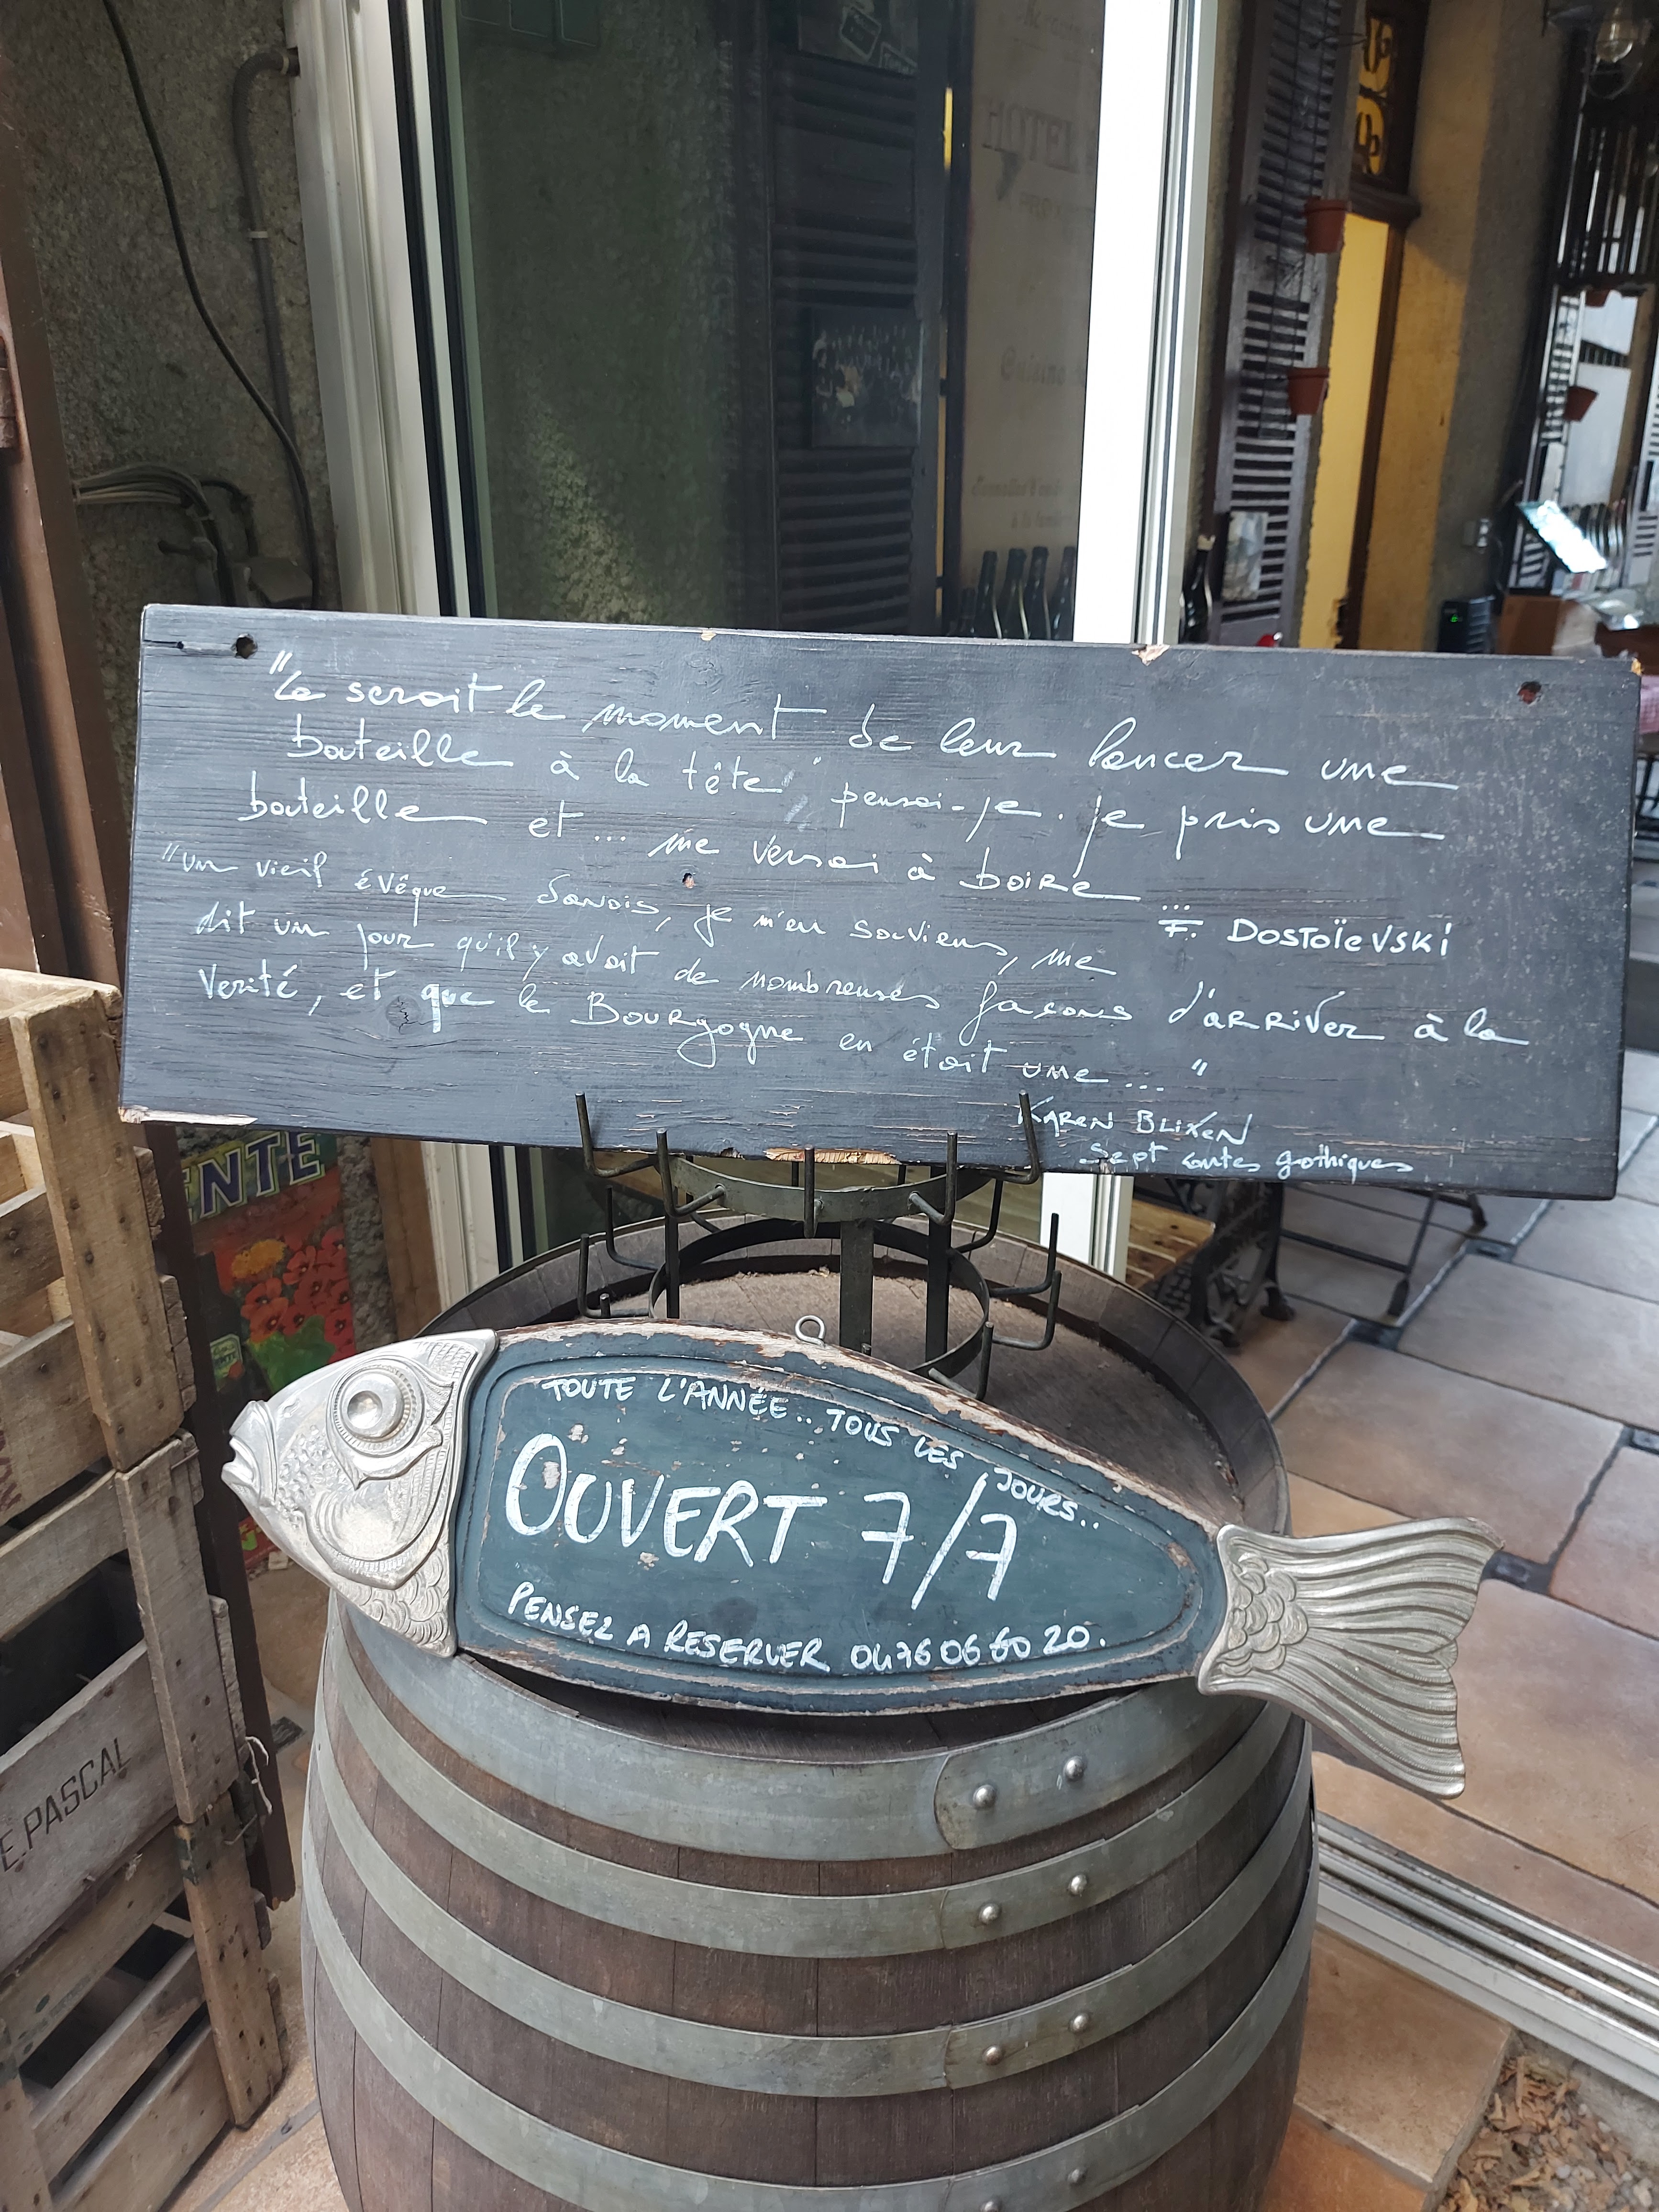 HOTEL
Cuisine
"Ce serait le moment de leur lancer une
bouteille à la tête" pensai-je. je pris une
bouteille et... me versai à boire...
F. DOSTOÏEVSKI
"un vieil évêque danois, je m'en souviens, me
dit un jour qu'il y avait de nombreuses façons d'ARRiVer à la
Verité, et que le Bourgogne en était une... "
KAREN BLIXEN
Sept contes gothiques
ENTE
TOUTE L'ANNÉE.. TOUS LES JOURS..
OUVERT 7/7
PENSEZ A RESERVER 04 76 06 60 20.
E.PASCAL